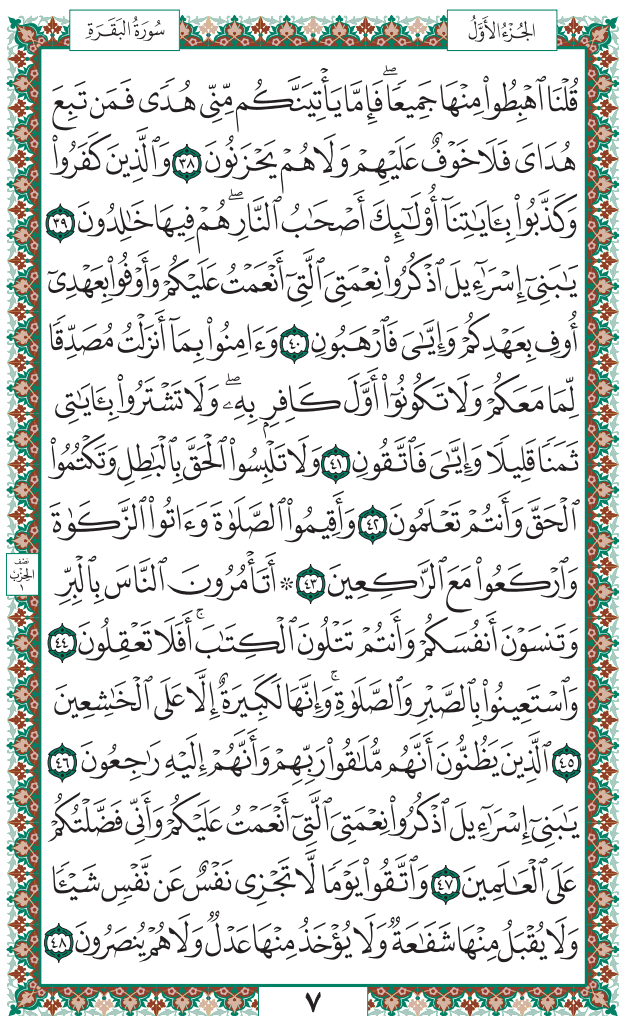 الجُزْءُ الأَوَّلُ
سُورَةُ البَقَرَةِ
قُلْنَا ٱهْبِطُوا۟ مِنْهَا جَمِيعًاۖ فَإِمَّا يَأْتِيَنَّكُم مِّنِّى هُدًى فَمَن تَبِعَ
هُدَاىَ فَلَا خَوْفٌ عَلَيْهِمْ وَلَا هُمْ يَحْزَنُونَ ٣٨ وَٱلَّذِينَ كَفَرُوا۟
وَكَذَّبُوا۟ بِـَٔايَـٰتِنَآ أُو۟لَـٰٓئِكَ أَصْحَـٰبُ ٱلنَّارِۖ هُمْ فِيهَا خَـٰلِدُونَ ٣٩
يَـٰبَنِىٓ إِسْرَٰٓءِيلَ ٱذْكُرُوا۟ نِعْمَتِىَ ٱلَّتِىٓ أَنْعَمْتُ عَلَيْكُمْ وَأَوْفُوا۟ بِعَهْدِىٓ
أُوفِ بِعَهْدِكُمْ وَإِيَّـٰىَ فَٱرْهَبُونِ ٤٠ وَءَامِنُوا۟ بِمَآ أَنزَلْتُ مُصَدِّقًا
لِّمَا مَعَكُمْ وَلَا تَكُونُوٓا۟ أَوَّلَ كَافِرٍۭ بِهِۦۖ وَلَا تَشْتَرُوا۟ بِـَٔايَـٰتِى
ثَمَنًا قَلِيلًا وَإِيَّـٰىَ فَٱتَّقُونِ ٤١ وَلَا تَلْبِسُوا۟ ٱلْحَقَّ بِٱلْبَـٰطِلِ وَتَكْتُمُوا۟
ٱلْحَقَّ وَأَنتُمْ تَعْلَمُونَ ٤٢ وَأَقِيمُوا۟ ٱلصَّلَوٰةَ وَءَاتُوا۟ ٱلزَّكَوٰةَ
وَٱرْكَعُوا۟ مَعَ ٱلرَّٰكِعِينَ ٤٣ ۞ أَتَأْمُرُونَ ٱلنَّاسَ بِٱلْبِرِّ
نصف
الحزب
١
وَتَنسَوْنَ أَنفُسَكُمْ وَأَنتُمْ تَتْلُونَ ٱلْكِتَـٰبَۚ أَفَلَا تَعْقِلُونَ ٤٤
وَٱسْتَعِينُوا۟ بِٱلصَّبْرِ وَٱلصَّلَوٰةِۚ وَإِنَّهَا لَكَبِيرَةٌ إِلَّا عَلَى ٱلْخَـٰشِعِينَ
٤٥ ٱلَّذِينَ يَظُنُّونَ أَنَّهُم مُّلَـٰقُوا۟ رَبِّهِمْ وَأَنَّهُمْ إِلَيْهِ رَٰجِعُونَ ٤٦
يَـٰبَنِىٓ إِسْرَٰٓءِيلَ ٱذْكُرُوا۟ نِعْمَتِىَ ٱلَّتِىٓ أَنْعَمْتُ عَلَيْكُمْ وَأَنِّى فَضَّلْتُكُمْ
عَلَى ٱلْعَـٰلَمِينَ ٤٧ وَٱتَّقُوا۟ يَوْمًا لَّا تَجْزِى نَفْسٌ عَن نَّفْسٍ شَيْـًٔا
وَلَا يُقْبَلُ مِنْهَا شَفَـٰعَةٌ وَلَا يُؤْخَذُ مِنْهَا عَدْلٌ وَلَا هُمْ يُنصَرُونَ ٤٨
٧